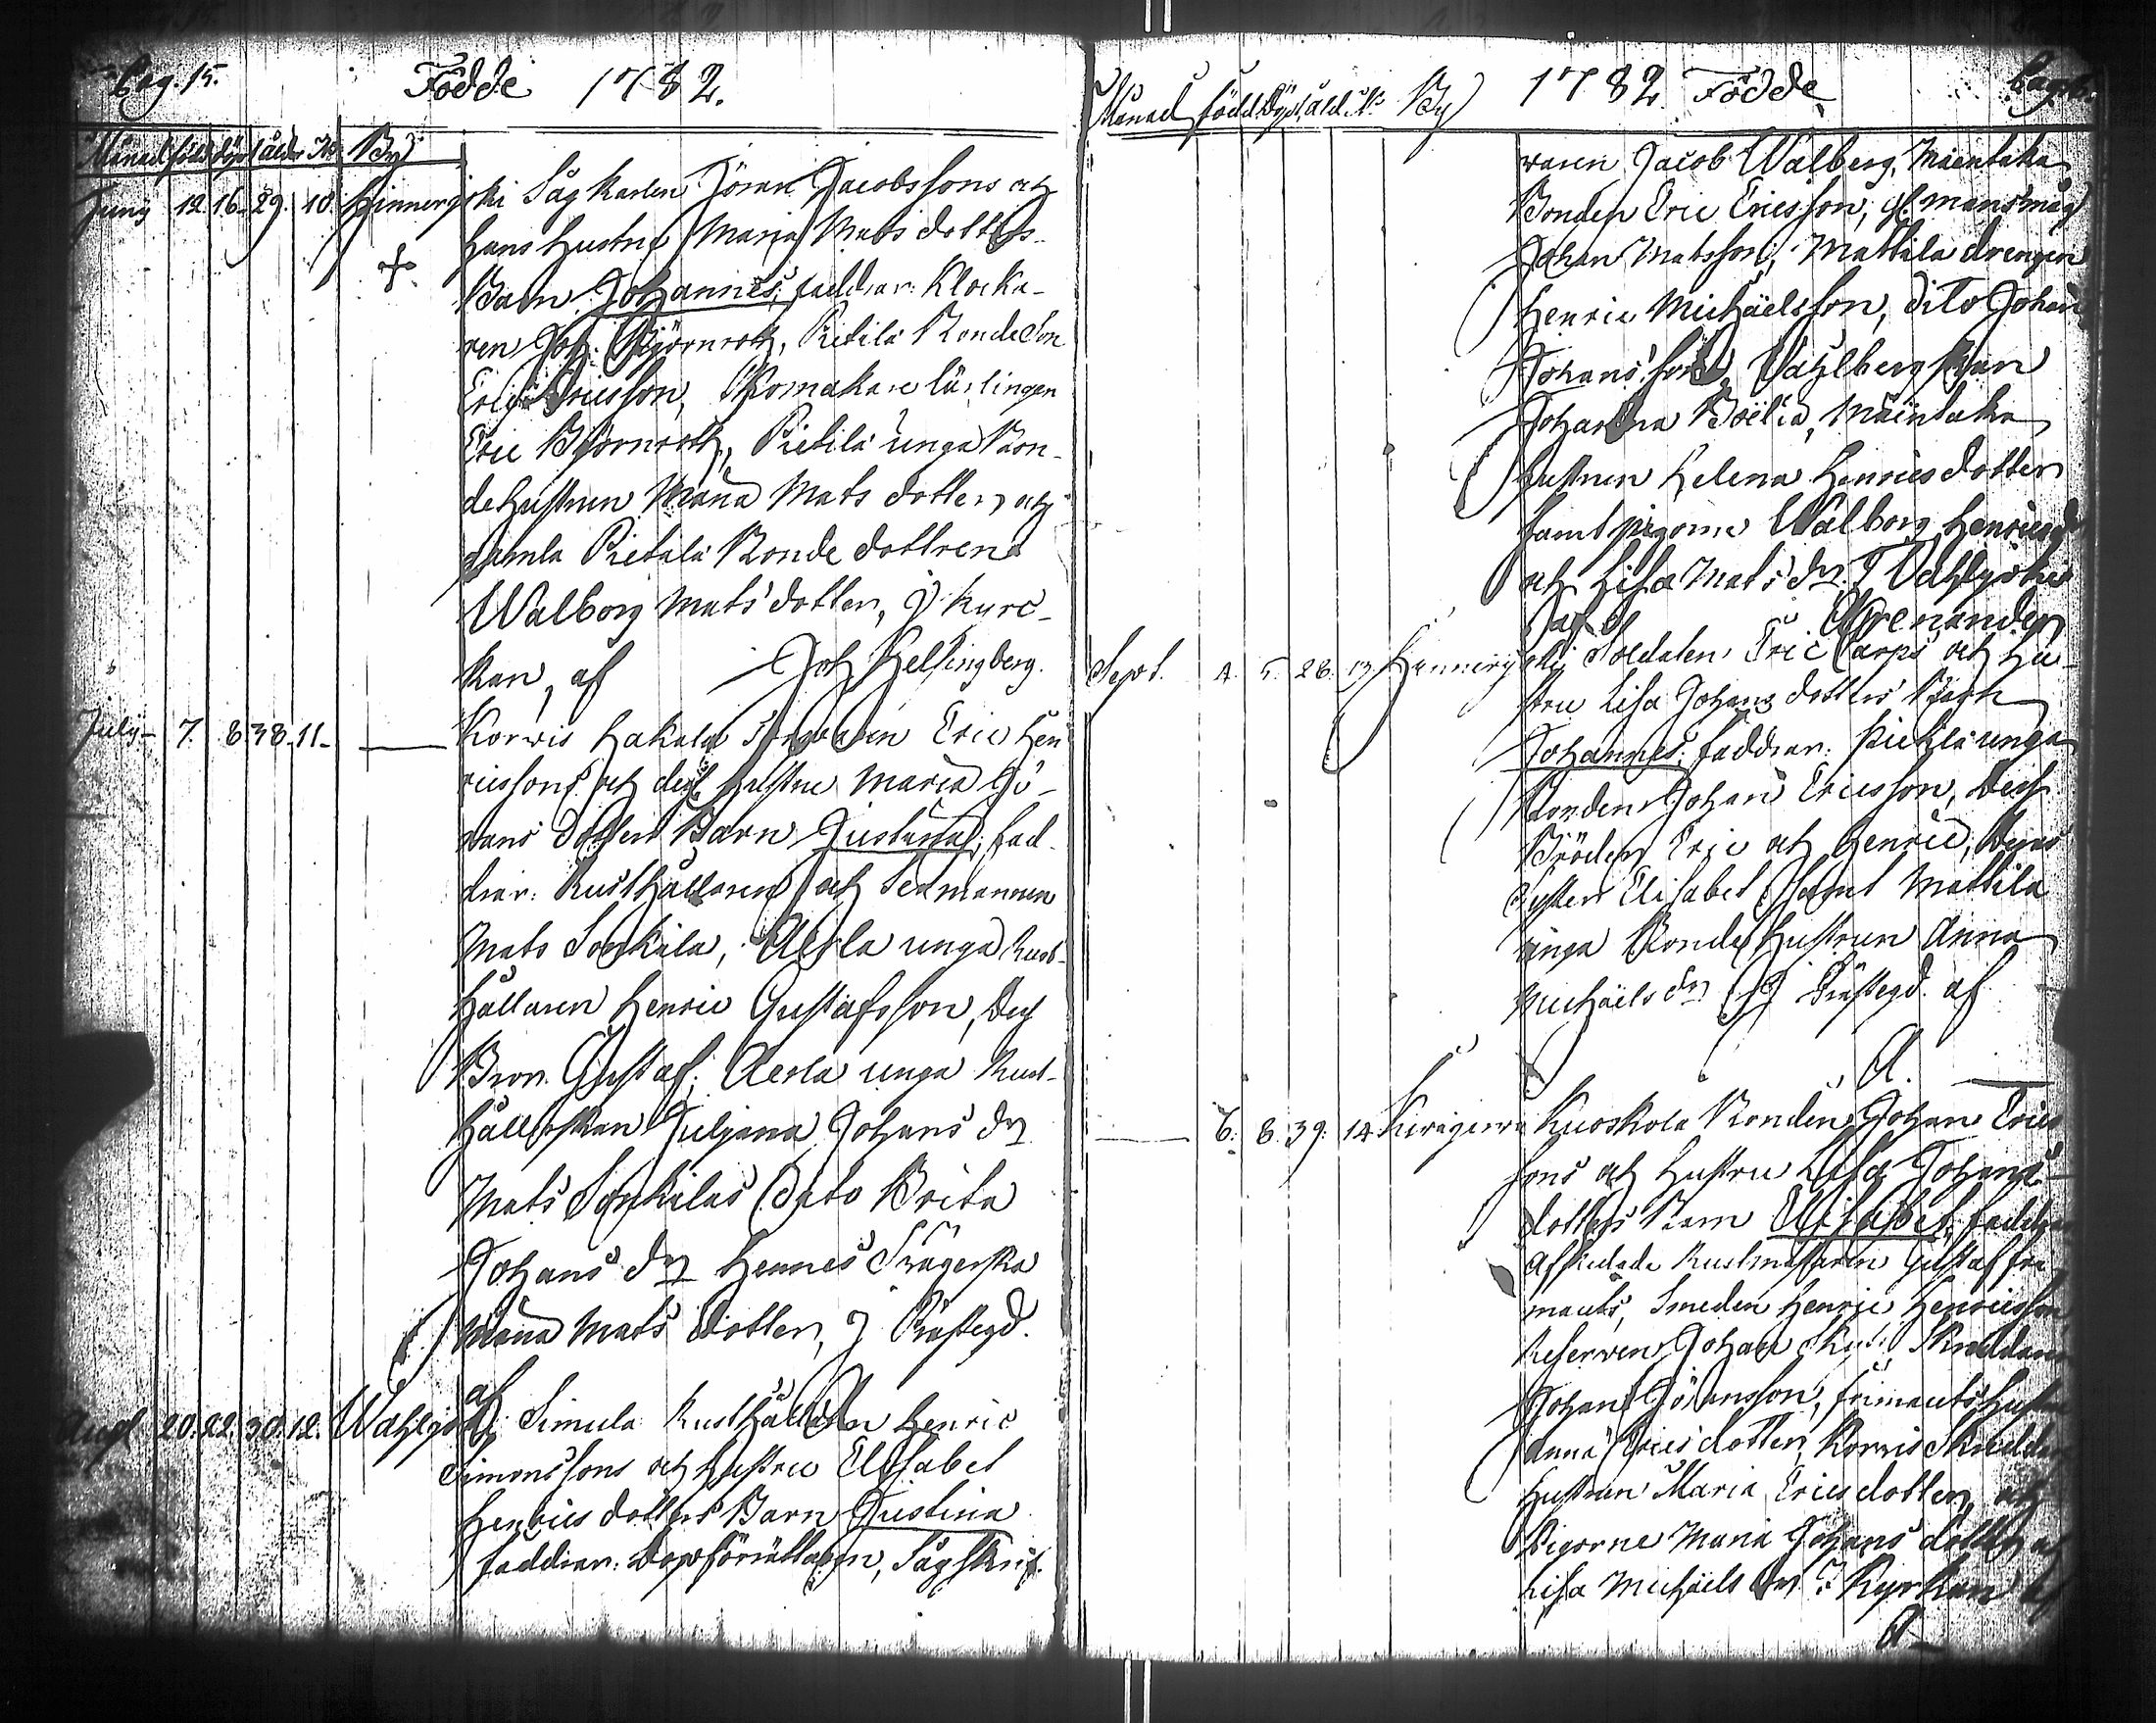 Pag. 15.
Födde 1782.
Månad född döpt ålder No By
Juny 12. 16. 29. 10. Hinnerjoki Sågkarlen Jöran Jacobssons och
hans hustru Maria Mats dotters
Barn Johannes; faddrar: Klocka-
ren Joh. Björnroth, Pietilä Bonde Son
Eric Ericsson, Skomakare lärlingen
Eric Björnroth, Pietilä unga Bon-
de hustrun Maria Mats dotter, och
gamla Pietilä Bonde dottren
Walborg Mats dotter, J Kyrc-
kan, af Joh Helsingberg.
July 7. 8. 38. 11. Korwis Hakala Eric Hen
ricssons och dess hustru Maria Gö-
rans dotters Barn Justina; fad-
drar: Rusthållaren och Sexmannen
Mats Sonkila, Aerla unga Rust-
hållaren Henric Gustafsson, Dess
Bror Gustaf, Aerla unga Rust-
hållerskan Juljana Johans dr
Mats Sonkilas Dito Brita
Johans dr Hennes Swägerska
Maria Mats dotter, J Prästegd.
af
Augt 20. 22. 30. 12. Wahlgo Simula Rusthållaren Henric
Simonssons och hustru Elisabet
Henrics dotters Barn Justina
faddrar: Dopförrättaren, Sågskrif-
Månad född Döpt åld. No By 1782 Födde
waren Jacob Walberg, Mäentaka
Bonden Eric Ericsson, mansmåg
Johan Matsson, Mattila drengen
Henric Michaëlsson, Dito Johan
Johansson, Wahlbergskan
Johanna Boëlia, Mäentaka
hustrun Helena Henricsdotter
samt pigorne Walborg Henricsd
och Lisa Mats dr. J Wahlgokis
af Arenander
Sept. 4. 5. 28. 13. Hennerjoki Soldaten Eric Carps och Hu-
stru Lisa Johans dotters Barn
Johannes; faddrar: Pietilä unga
Bonden Johan Ericsson, Dess
Bröder Eric och Henric, Deras
Syster Elisabet samt Mattila
unga Bonde Hustrun Anna
Michaëls dr J Prästegd. af
A.
6. 8. 39. 14. Kuoskola Bonden Johan Erics
sons och hustru Lisa Johans-
dotters Barn Elisabet; faddrar
Afskedade Rustmästaren Gustaf Fri
mants, Smeden Henric Henricsson,
Reserven Johan Skräddaren
Johan Göransson, Frimants hustru
Anna Erics dotter, Korwis Skrädda
Hustrun Maria Ericsdotter, och
Pigorne Maria Johans dotter och
Lisa Michaëls dr J Kyrkan af
A